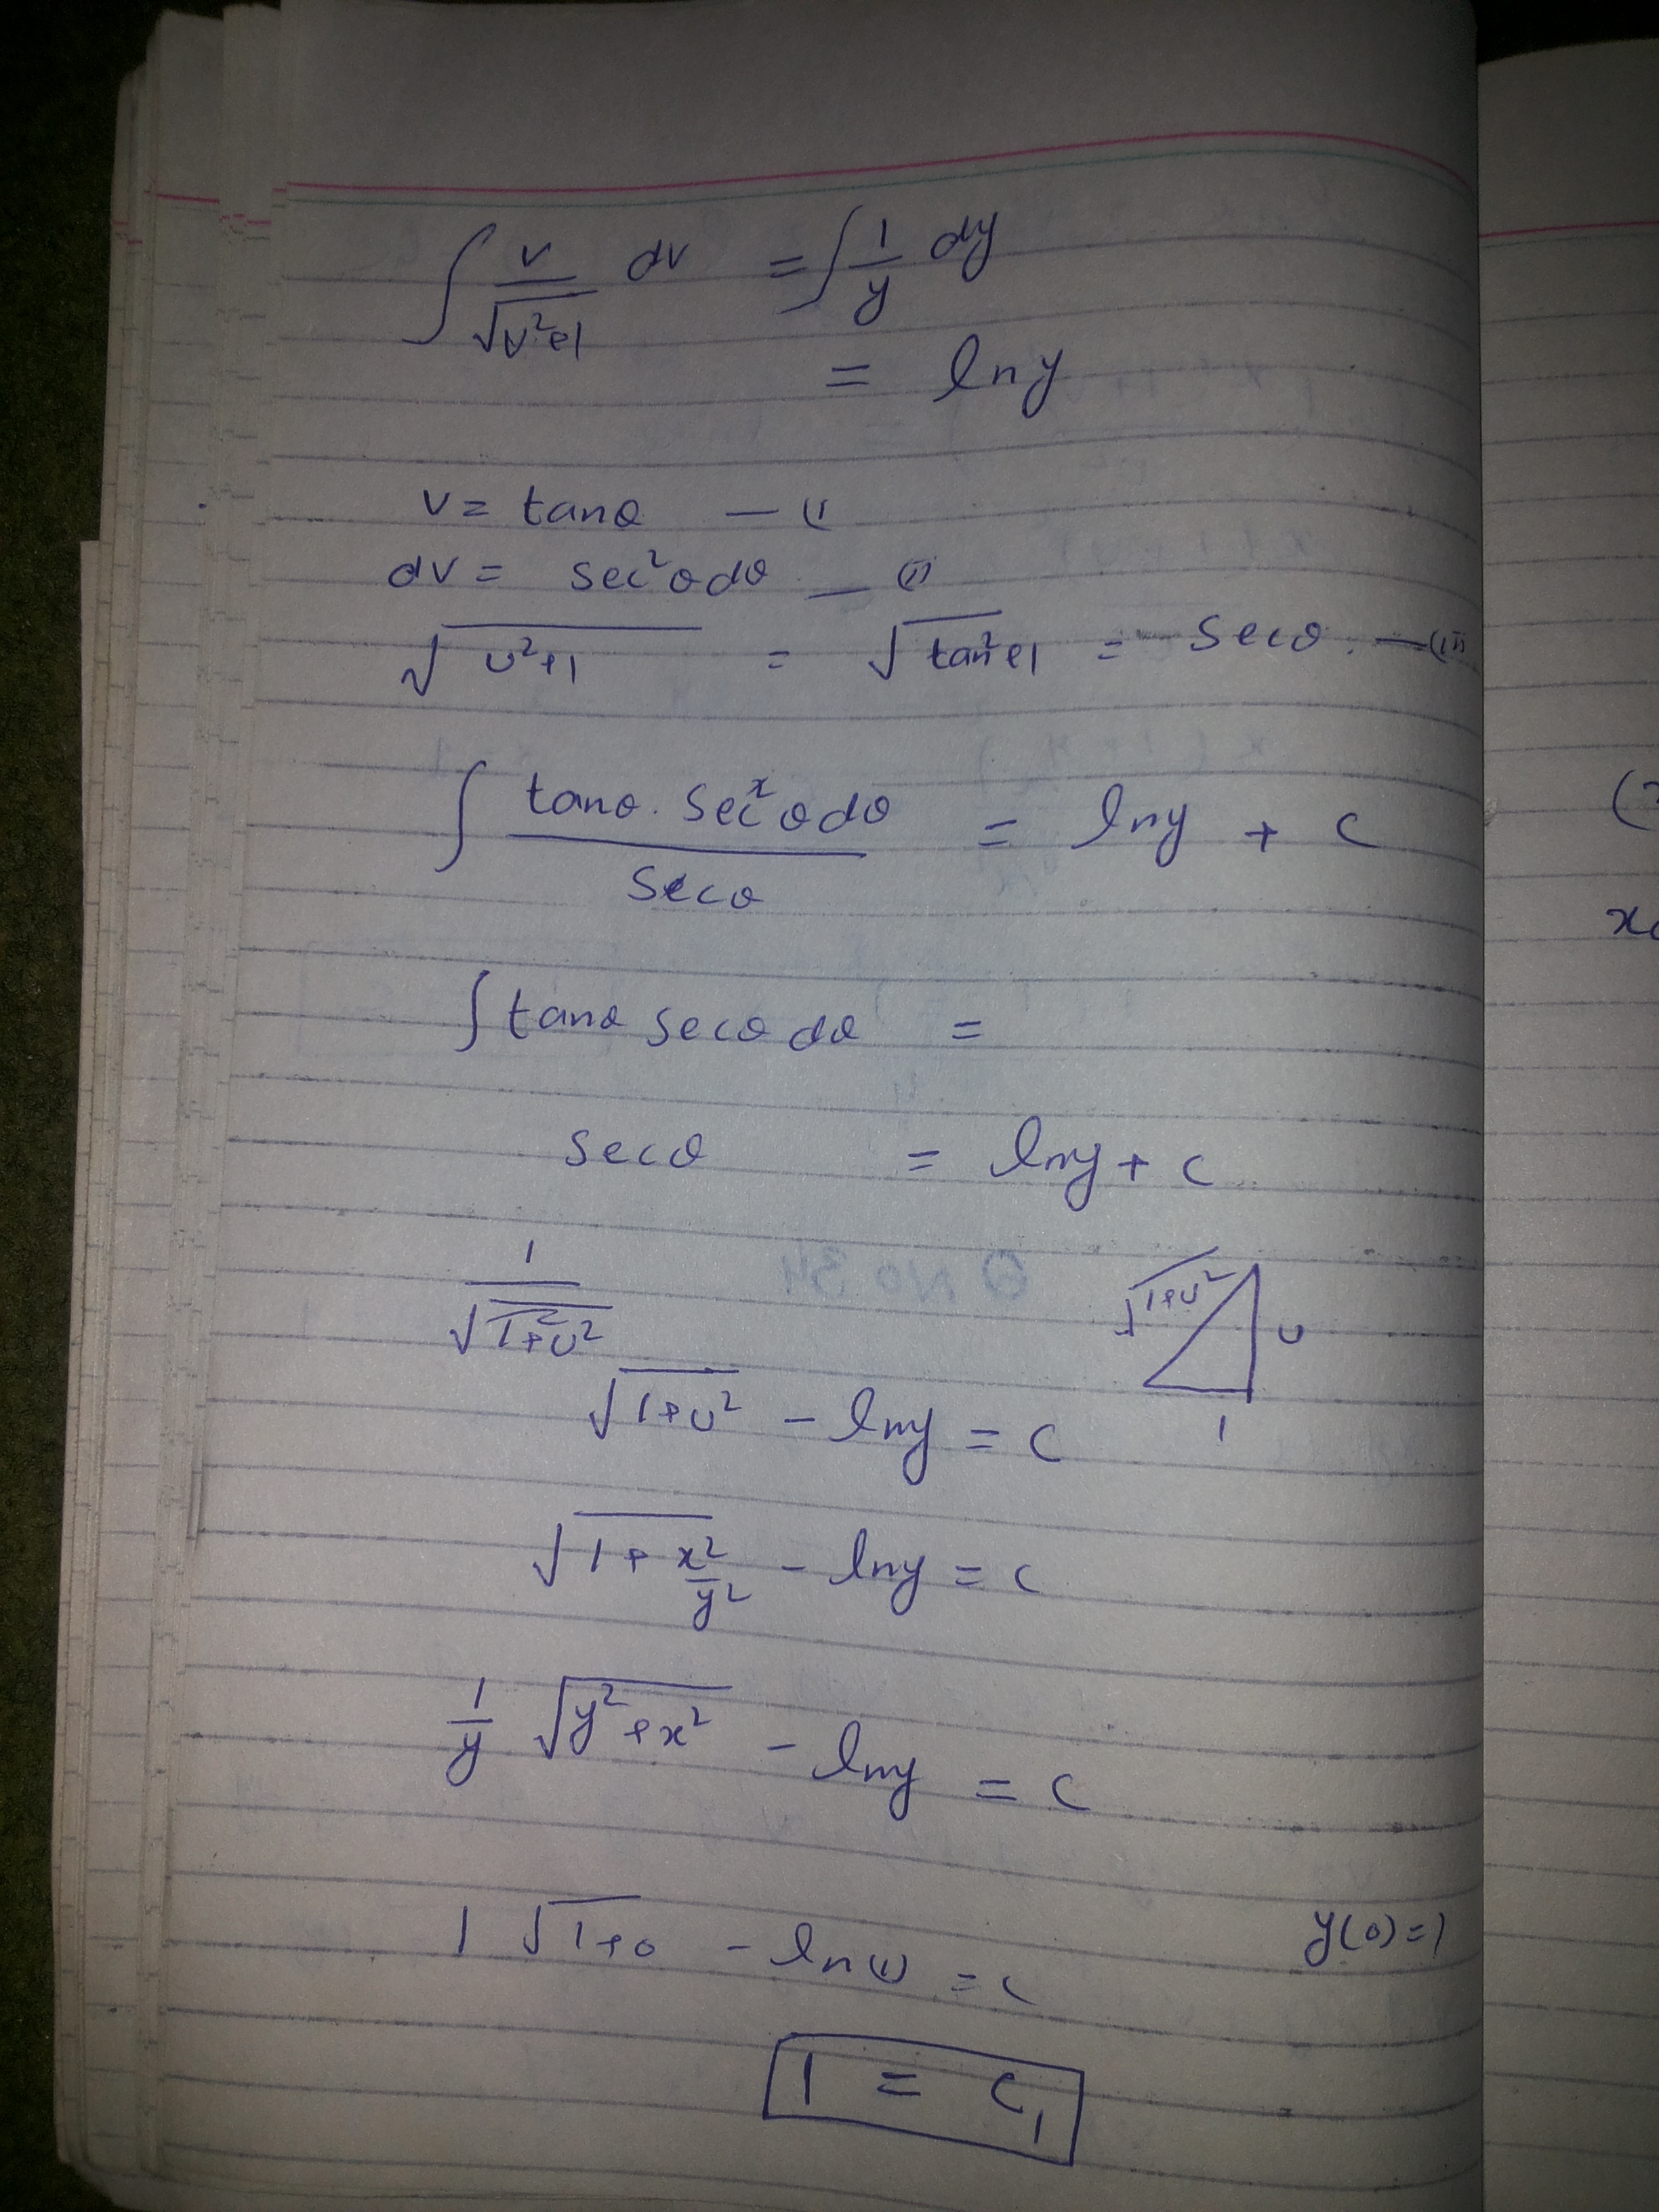 ∫ v/√(v²+1) dv = ∫ 1/y dy
= ln y
v = tanθ — (i
dv = sec²θ dθ — (ii)
√(v²+1) = √(tan²+1) = secθ. — (iii)
∫ tanθ. sec²θ dθ / secθ = ln y + c
∫ tanθ secθ dθ =
secθ = ln y + c
1/√(1+v²)
√(1+v²)
v
1
√(1+v²) - ln y = c
√(1 + x²/y²) - ln y = c
1/y √(y²+x²) - ln y = c
1 √(1+0) - ln(1) = c
y(0)=1
1 = c₁